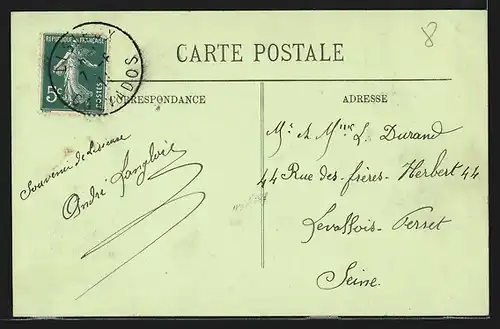 8
CARTE POSTALE
REPUBLIQUE FRANÇAISE
5c POSTES
CORRESPONDANCE
ADRESSE
Souvenir de
André Langlois
Mr et Mme L. Durand
44 Rue des-frères-Herbert 44
Levallois-Perret
Seine.